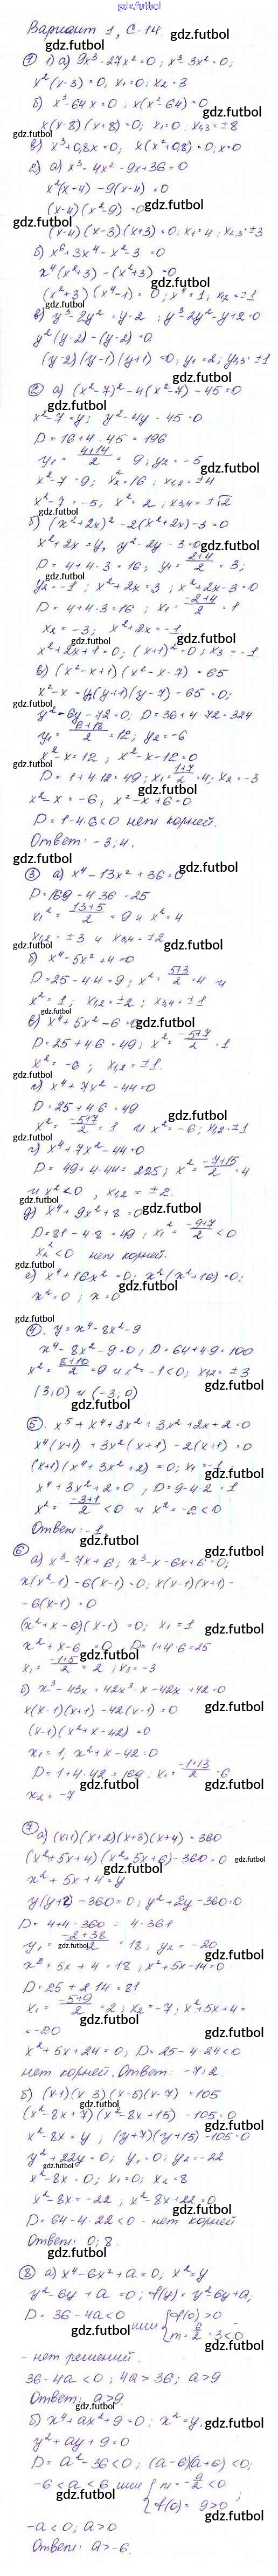 gdz.futbol
Вариант 1, С-14.
① 1) а) 9x³-27x²=0; x³-3x²=0;
x²(x-3)=0; x₁=0; x₂=3
б) x³-64x=0; x(x²-64)=0
x(x-8)(x+8)=0; x₁=0; x₂,₃=±8
в) x³+0,8x=0; x(x²+0,8)=0; x=0
2) а) x³-4x²-9x+36=0
x²(x-4)-9(x-4)=0
(x-4)(x²-9)=0
(x-4)(x-3)(x+3)=0; x₁=4; x₂,₃=±3
б) x⁶+3x⁴-x²-3=0
x⁴(x²+3)-(x²+3)=0
(x²+3)(x⁴-1)=0; x⁴=1; x₁,₂=±1
в) y³-2y²=y-2; y³-2y²-y+2=0
y²(y-2)-(y-2)=0
(y-2)(y-1)(y+1)=0; y₁=2; y₂,₃=±1
② а) (x²-7)²-4(x²-7)-45=0
x²-7=y; y²-4y-45=0
D=16+4·45=196
y₁=(4+14)/2=9; y₂=-5
x²-7=9; x²=16; x₁,₂=±4
x²-7=-5; x²=2; x₃,₄=±√2
б) (x²+2x)²-2(x²+2x)-3=0
x²+2x=y, y²-2y-3=0
D=4+4·3=16; y₁=(2+4)/2=3;
y₂=-1; x²+2x=3; x²+2x-3=0
D=4+4·3=16; x₁=(-2+4)/2=1
x₂=-3; x²+2x=-1
x²+2x+1=0; (x+1)²=0; x₃=-1
в) (x²-x+1)(x²-x-7)=65
x²-x=y; (y+1)(y-7)-65=0;
y²-6y-72=0; D=36+4·72=324
y₁=(6+18)/2=12; y₂=-6
x²-x=12; x²-x-12=0
D=1+4·12=49; x₁=(1+7)/2=4; x₂=-3
x²-x=-6, x²-x+6=0
D=1-4·6<0 нет корней.
Ответ: -3; 4.
③ а) x⁴-13x²+36=0
D=169-4·36=25
x₁²=(13+5)/2=9 и x²=4
x₁,₂=±3 и x₃,₄=±2
б) x⁴-5x²+4=0
D=25-4·4=9; x²=(5+3)/2=4 и
x²=1; x₁,₂=±2; x₃,₄=±1
в) x⁴+5x²-6=0
D=25+4·6=49; x²=(-5+7)/2=1
x²=-6; x₁,₂=±1.
г) x⁴+7x²-44=0
D=25+4·6=49
x²=(-5+7)/2=1 и x²=-6; x₁,₂=±1
г) x⁴+7x²-44=0
D=49+4·44=225; x²=(-7+15)/2=4
и x²<0, x₁,₂=±2.
д) x⁴+9x²+8=0
D=81-4·8=49; x₁²=(-9+7)/2<0
x₂²<0 нет корней.
е) x⁴+16x²=0; x²(x²+16)=0;
x²=0; x=0
④ y=x⁴-8x²-9
x⁴-8x²-9=0; D=64+4·9=100
x²=(8+10)/2=9 и x²=-1<0; x₁,₂=±3
(3;0) и (-3;0)
⑤ x⁵+x⁴+3x³+3x²+2x+2=0
x⁴(x+1)+3x²(x+1)-2(x+1)=0
(x+1)(x⁴+3x²+2)=0; x₁=-1
x⁴+3x²+2=0; D=9-4·2=1
x²=(-3+1)/2<0 и x²=-2<0
Ответ: -1.
⑥
а) x³-7x+6; x³-x-6x+6=0;
x(x²-1)-6(x-1)=0; x(x-1)(x+1)-
-6(x-1)=0
(x²+x-6)(x-1)=0; x₁=1
x²+x-6=0 D=1+4·6=25
x₁=(-1+5)/2=2; x₃=-3
б) x³-43x+42 x³-x-42x+42=0
x(x-1)(x+1)-42(x-1)=0
(x-1)(x²+x-42)=0
x₁=1, x²+x-42=0
D=1+4·42=169; x₁=(-1+13)/2=6
x₂=-7
⑦
а) (x+1)(x+2)(x+3)(x+4)=360
(x²+5x+4)(x²+5x+6)-360=0
x²+5x+4=y
y(y+2)-360=0; y²+2y-360=0
D=4+4·360=4·361
y₁=(-2+38)/2=18; y₂=-20
x²+5x+4=18; x²+5x-14=0
D=25+2·14=81
x₁=(-5+9)/2=2; x₂=-7; x²+5x+4=
=-20
x²+5x+24=0; D=25-4·24<0
нет корней. Ответ: -7; 2.
б) (x-1)(x-3)(x-5)(x-7)=105
(x²-8x+7)(x²-8x+15)-105=0
x²-8x=y; (y+7)(y+15)-105=0
y²+22y=0; y₁=0; y₂=-22
x²-8x=0; x₁=0; x₂=8
x²-8x=-22; x²-8x+22=0
D=64-4·22<0 - нет корней
Ответ: 0; 8.
⑧ а) x⁴-6x²+a=0; x²=y
y²-6y+a=0; f(y)=y²-6y+a;
D=36-4a<0 или {f(0)>0 m=6/2=3<0
- нет решений.
36-4a<0; 4a>36; a>9
Ответ: a>9.
б) x⁴+ax²+9=0; x²=y,
y²+ay+9=0
D=a²-36<0; (a-6)(a+6)<0;
-6<a<6 или {m=-a/2<0 f(0)=9>0;
-a<0; a>0
Ответ: a>-6.
gdz.futbol